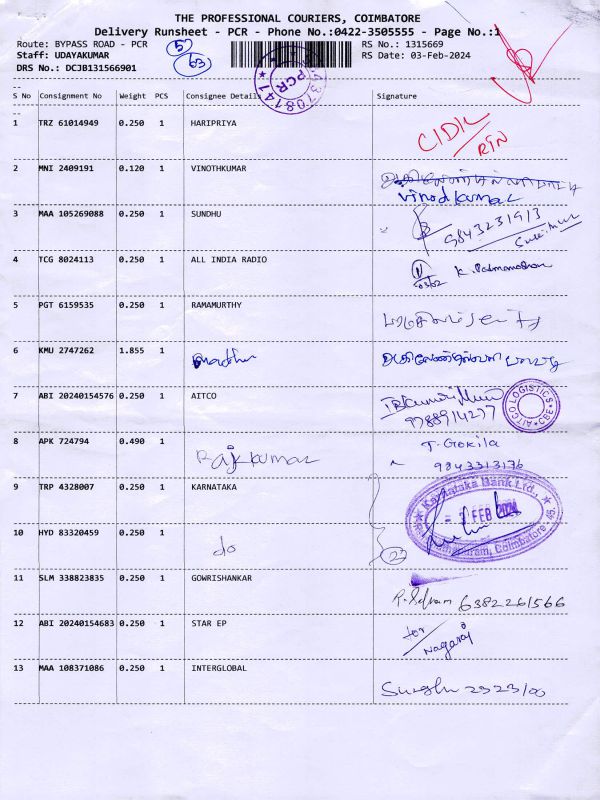 THE PROFESSIONAL COURIERS, COIMBATORE
Delivery Runsheet - PCR - Phone No.:0422-3505555 - Page No.:1
Route: BYPASS ROAD - PCR
RS No.: 1315669
Staff: UDAYAKUMAR
RS Date: 03-Feb-2024
DRS No.: DCJB131566901
63
PCR
--
S No Consignment No Weight PCS Consignee Details Signature
--
1 TRZ 61014949 0.250 1 HARIPRIYA
2 MNI 2409191 0.120 1 VINOTHKUMAR
Vinodkumar
3 MAA 105269088 0.250 1 SUNDHU 9843231913
4 TCG 8024113 0.250 1 ALL INDIA RADIO
5 PGT 6159535 0.250 1 RAMAMURTHY
6 KMU 2747262 1.855 1 madhu
7 ABI 20240154576 0.250 1 AITCO 9788914277
AITCO LOGISTICS CBE
8 APK 724794 0.490 1 Rajkumar T. Gokila
9843313176
9 TRP 4328007 0.250 1 KARNATAKA
Karnataka Bank Ltd.,
FEB 2024
Coimbatore
10 HYD 83320459 0.250 1 do
11 SLM 338823835 0.250 1 GOWRISHANKAR 6382261566
12 ABI 20240154683 0.250 1 STAR EP for
Nagaraj
13 MAA 108371086 0.250 1 INTERGLOBAL